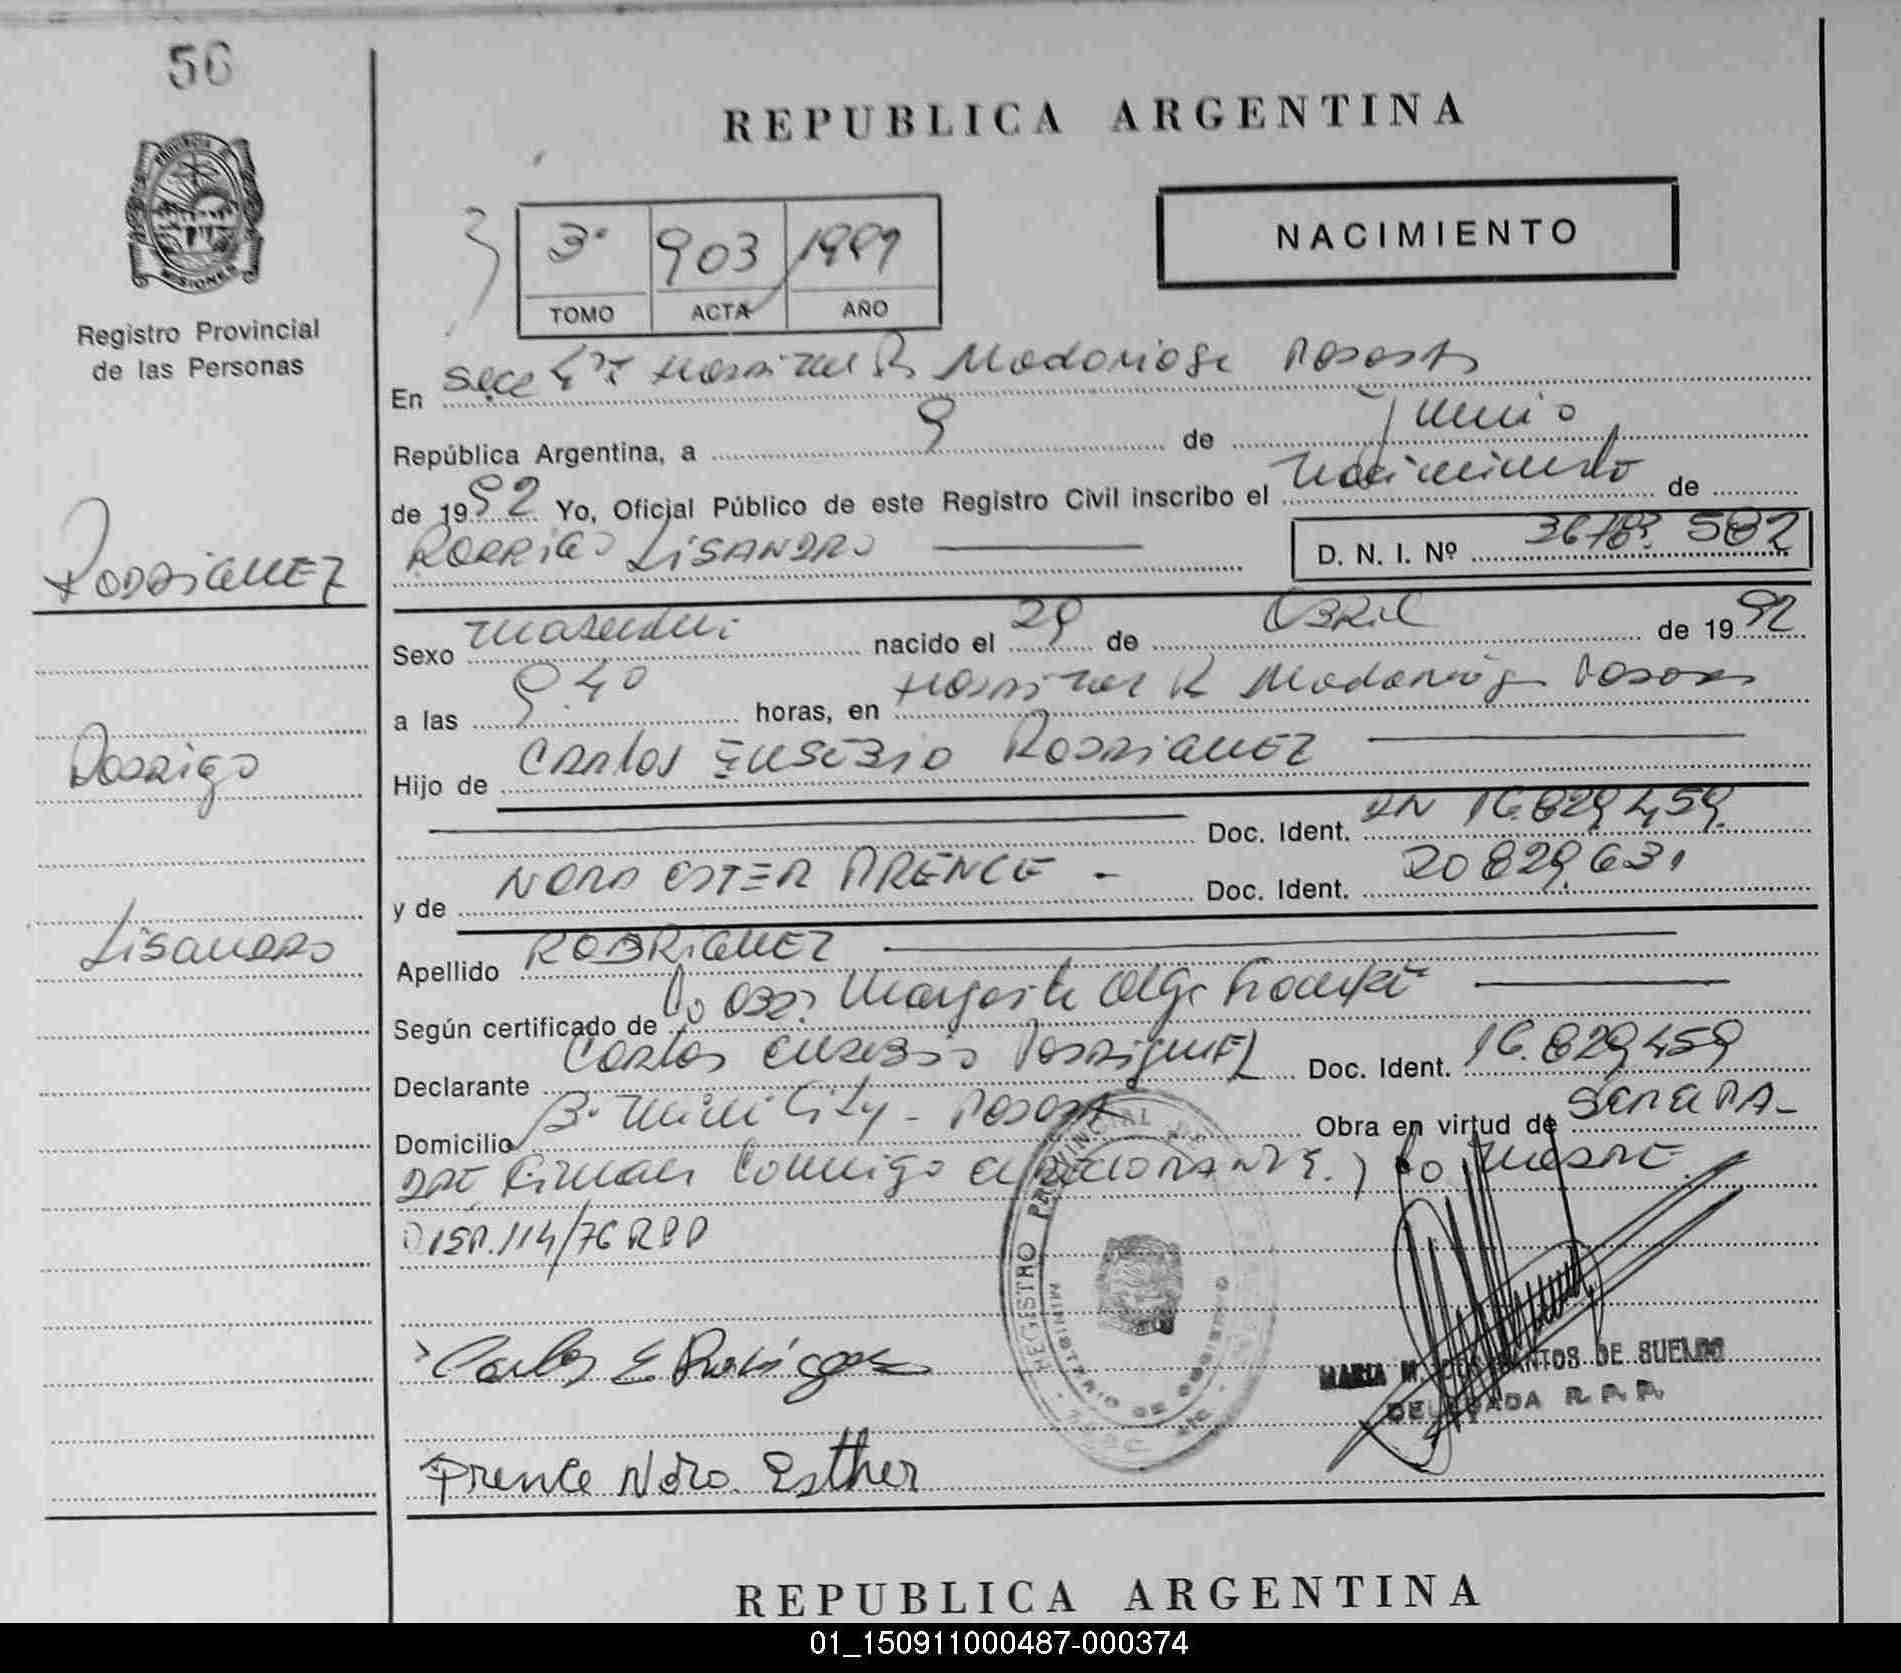 56
REPUBLICA ARGENTINA
PROVINCIA
MISIONES
Registro Provincial
de las Personas
NACIMIENTO
3° 903 1992
TOMO ACTA AÑO
En Secc Hospital R Madariaga Posadas
República Argentina, a 9 de Junio
de 1992 Yo, Oficial Público de este Registro Civil inscribo el nacimiento de
RODRIGO LISANDRO D. N. I. Nº 582
RODRIGUEZ
Sexo masculino nacido el 29 de ABRIL de 1992
a las 9.40 horas, en Hospital R Madariaga Posadas
Rodrigo
Hijo de Carlos EUSEBIO RODRIGUEZ
Doc. Ident. DN 16.829.459
y de NORA ESTER PRENCE - Doc. Ident. 20829631
Lisandro
Apellido RODRIGUEZ
Según certificado de Margarita Olga
Declarante Carlos Eusebio RODRIGUEZ Doc. Ident. 16.829.459
Domicilio B° Mini City - Posadas Obra en virtud de
Firman conmigo el declarante y la MADRE.
DISP. 114/76 RPP
REGISTRO PROVINCIAL DE
MINISTERIO DE GOBIERNO
Carlos E Rodriguez
MARIA M. SANTOS DE SUELDO
DELEGADA R. P. P.
Prence Nora Esther
REPUBLICA ARGENTINA
01_150911000487-000374